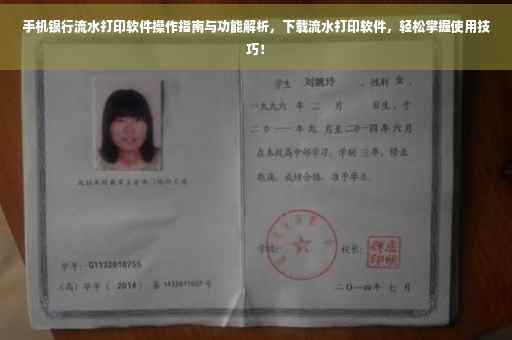 手机银行流水打印软件操作指南与功能解析，下载流水打印软件，轻松掌握使用技
巧！
学生 刘婉玲 ，性别 女 ，
一九九六 年 二 月 日生，于
二〇一一年九 月至二〇一四年六月
在本校高中部学习，学制 三年，修业
期满，成绩合格，准予毕业。
学校：
校长：
学号： G1132010755
（高）毕字（ 2014 ）第 1432011027 号
二〇一四年 七 月